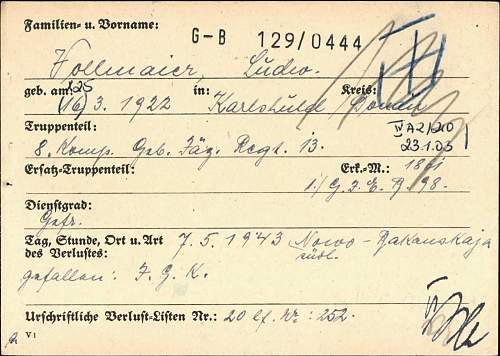 Familien- u. Vorname: G-B 129/0444
Vollmaier, Ludw.
125
geb. am: (16) 3. 1922 in: Karlshuld Kreis: Donau
Truppenteil: IV A2/210
8. Komp. Geb. Jäg. Regt. 13. 23.1.03
Ersatz-Truppenteil: Erk.-M.: 181
1./G. J. E. R 98.
Dienstgrad:
Gefr.
Tag, Stunde, Ort u. Art 7.5.1943 Nowo - Bakanskaja
des Verlustes: südl.
gefallen: J. G. K.
Urschriftliche Verlust-Listen Nr.: 20 lf. Nr: 252.
V 1